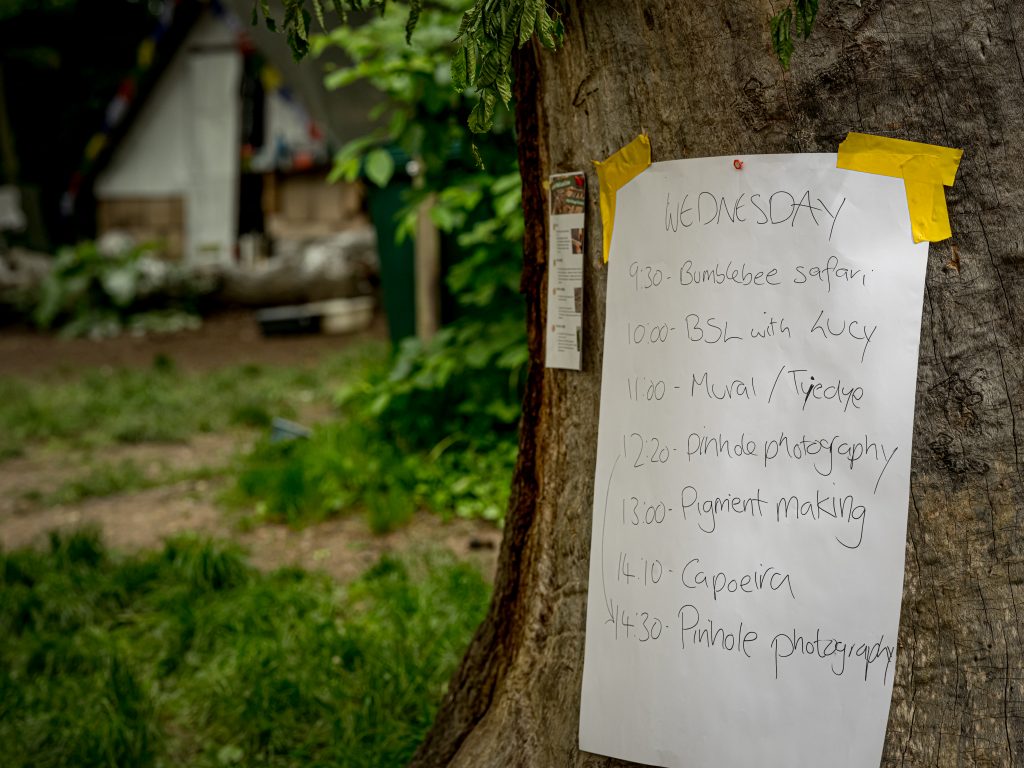 WEDNESDAY
9:30 - Bumblebee safari
10:00 - BSL with Lucy
11:00 - Mural / Tyedye
12:20 - Pinhole photography
13:00 - Pigment making
14:10 - Capoeira
14:30 - Pinhole photography